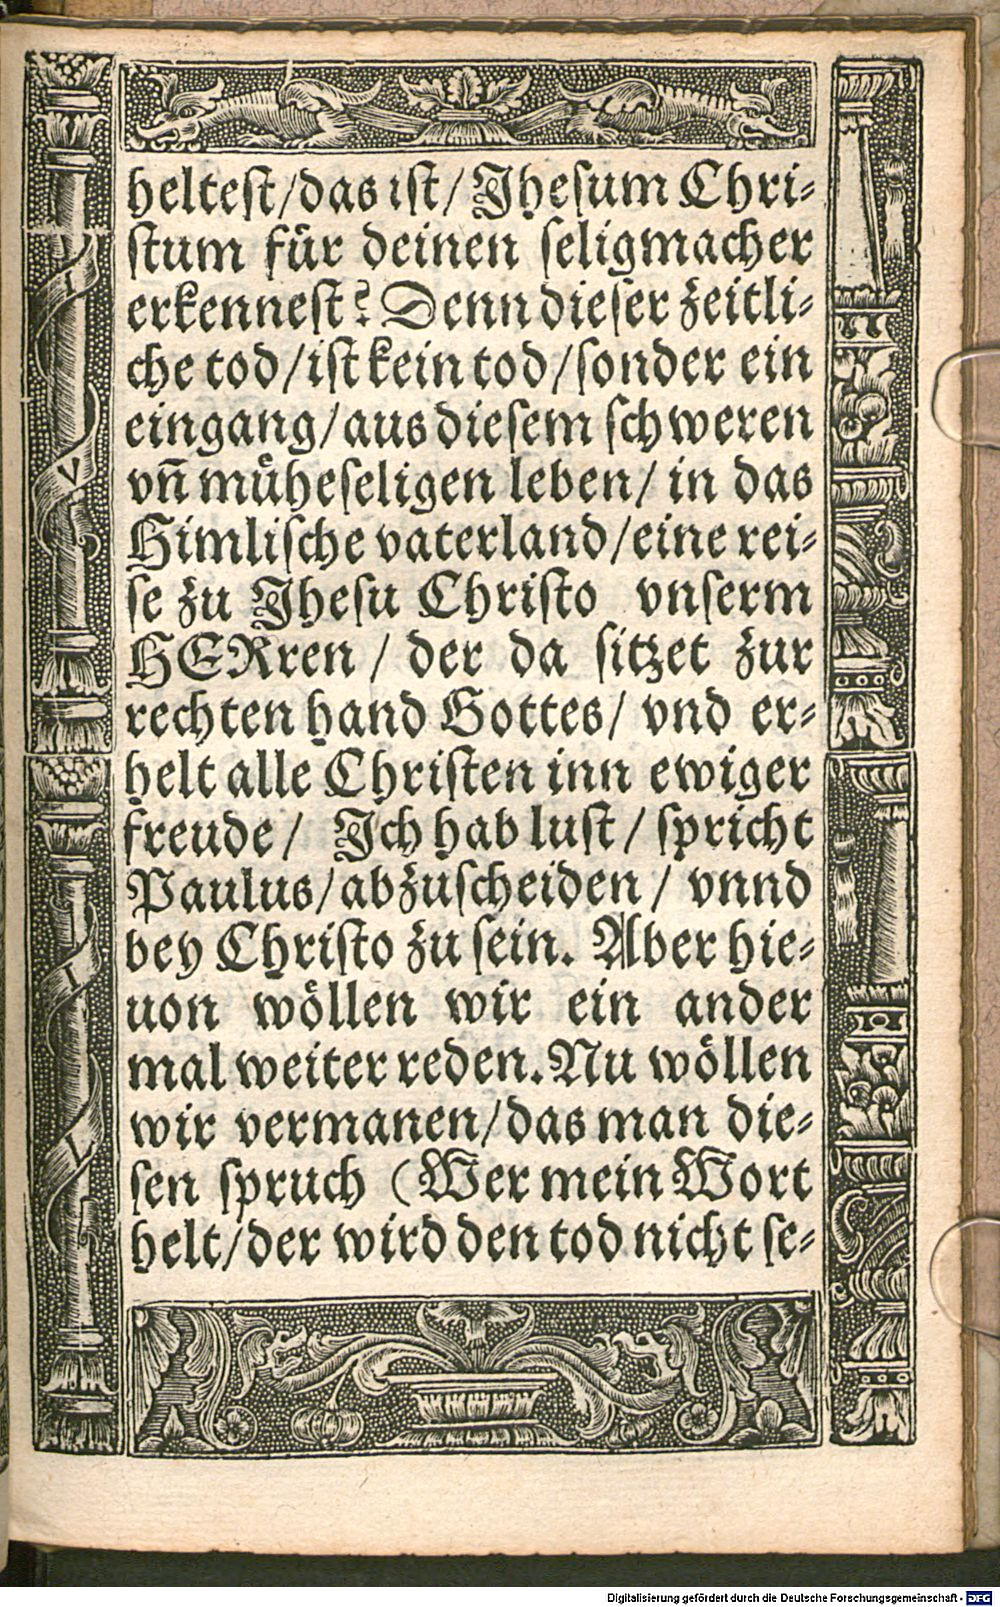 heltest/das ist/ Jhesum Chri⸗
stum für deinen seligmacher
erkennest? Denn dieser zeitli⸗
che tod/ist kein tod/sonder ein
eingang/aus diesem schweren
vñ müheseligen leben/ in das
Himlische vaterland/eine rei⸗
se zu Jhesu Christo vnserm
HERren / der da sitzet zur
rechten hand Gottes/ vnd er⸗
helt alle Christen inn ewiger
freude/ Jch hab lust/ spricht
Paulus/abzuscheiden/ vnnd
bey Christo zu sein. Aber hie⸗
uon wöllen wir ein ander
mal weiter reden. Nu wöllen
wir vermanen/das man die⸗
sen spruch (Wer mein Wort
helt/der wird den tod nicht se⸗
Digitalisierung gefördert durch die Deutsche Forschungsgemeinschaft - DFG